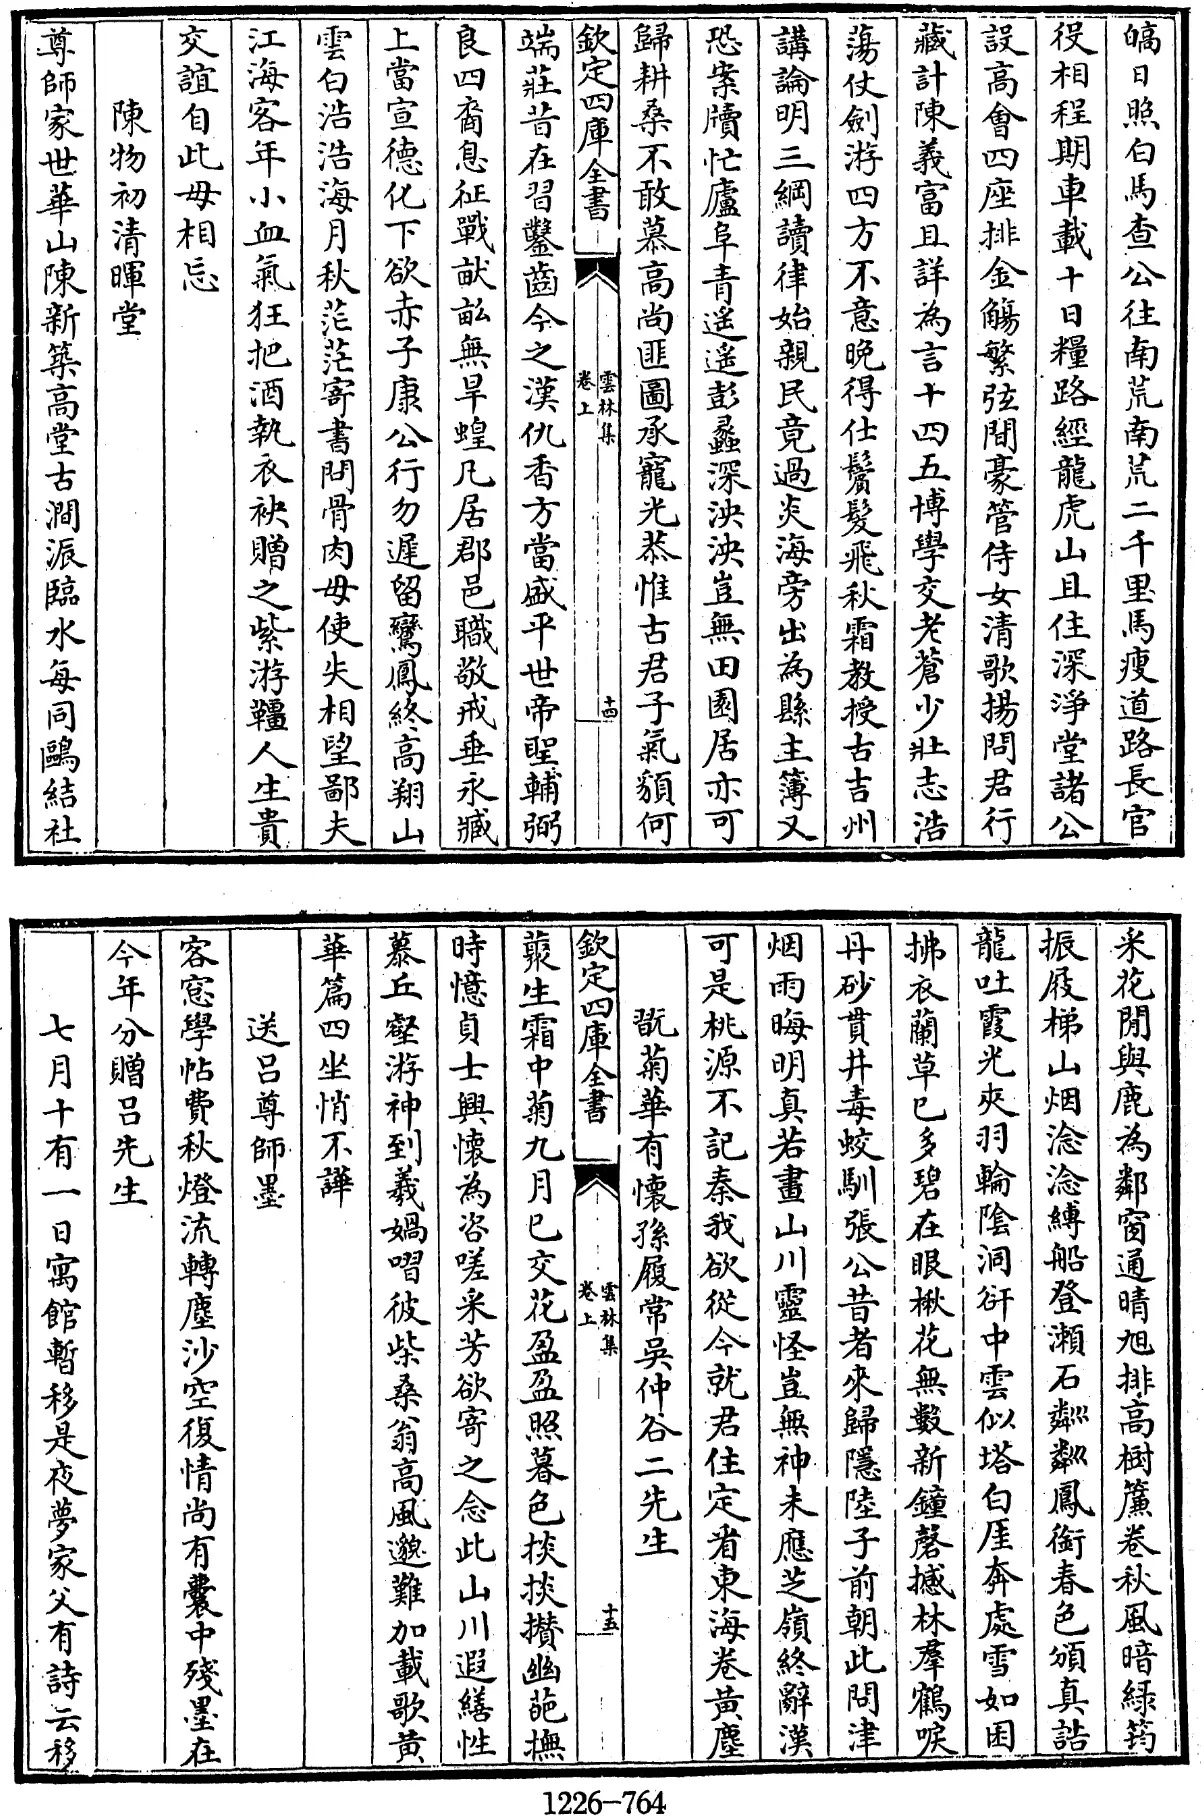 皜日照白馬查公往南荒南荒二千里馬瘦道路長官
役相程期車載十日糧路經龍虎山且住深淨堂諸公
設高會四座排金觴繁弦間豪管侍女清歌揚問君行
藏計陳義富且詳為言十四五博學交老蒼少壯志浩
蕩仗劍游四方不意晚得仕鬢髮飛秋霜教授古吉州
講論明三綱讀律始親民竟過炎海旁出為縣主簿又
恐案牘忙廬阜青遥遥彭蠡深泱泱豈無田園居亦可
歸耕桑不敢慕高尚匪圖承寵光恭惟古君子氣貌何
欽定四庫全書
雲林集
卷上
十四
端莊昔在習鑿齒今之漢仇香方當盛平世帝聖輔弼
良四裔息征戰畎畝無旱蝗凡居郡邑職敬戒垂永臧
上當宣德化下欲赤子康公行勿遲留鸞鳳終高翔山
雲白浩浩海月秋茫茫寄書問骨肉毋使失相望鄙夫
江海客年小血氣狂把酒執衣袂贈之紫游韁人生貴
交誼自此毋相忘
陳物初清暉堂
尊師家世華山陳新築高堂古澗派臨水每同鷗結社
采花閒與鹿為鄰窗通晴旭排高樹簾卷秋風暗緑筠
振屐梯山烟淰淰縛船登瀨石粼粼鳳銜春色頒真誥
龍吐霞光夾羽輪陰洞谺中雲似塔白厓奔處雪如囷
拂衣蘭草已多碧在眼楸花無數新鐘磬撼林羣鶴唳
丹砂貫井毒蛟馴張公昔者來歸隱陸子前朝此問津
烟雨晦明真若畫山川靈怪豈無神未應芝嶺終辭漢
可是桃源不記秦我欲從今就君住定看東海卷黄塵
翫菊華有懷孫履常吳仲谷二先生
欽定四庫全書
雲林集
卷上
十五
藂生霜中菊九月已交花盈盈照暮色掞掞攢幽葩撫
時憶貞士興懷為咨嗟采芳欲寄之念此山川遐繕性
慕丘壑游神到羲媧嘒彼柴桑翁高風邈難加載歌黄
華篇四坐悄不譁
送吕尊師墨
客窓學帖費秋燈流轉塵沙空復情尚有囊中殘墨在
今年分贈吕先生
七月十有一日寓館暫移是夜夢家父有詩云移
1226-764